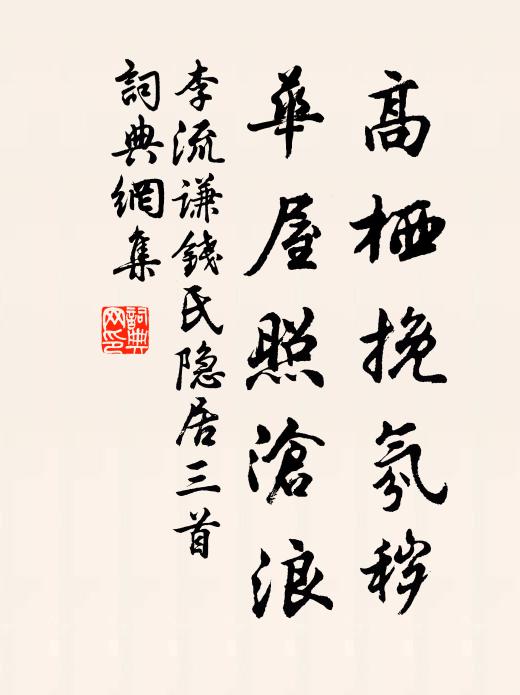 高栖挽氛秽
華屋照滄浪
李流谦錢氏隐居三首
詞典網集
詞典
网印